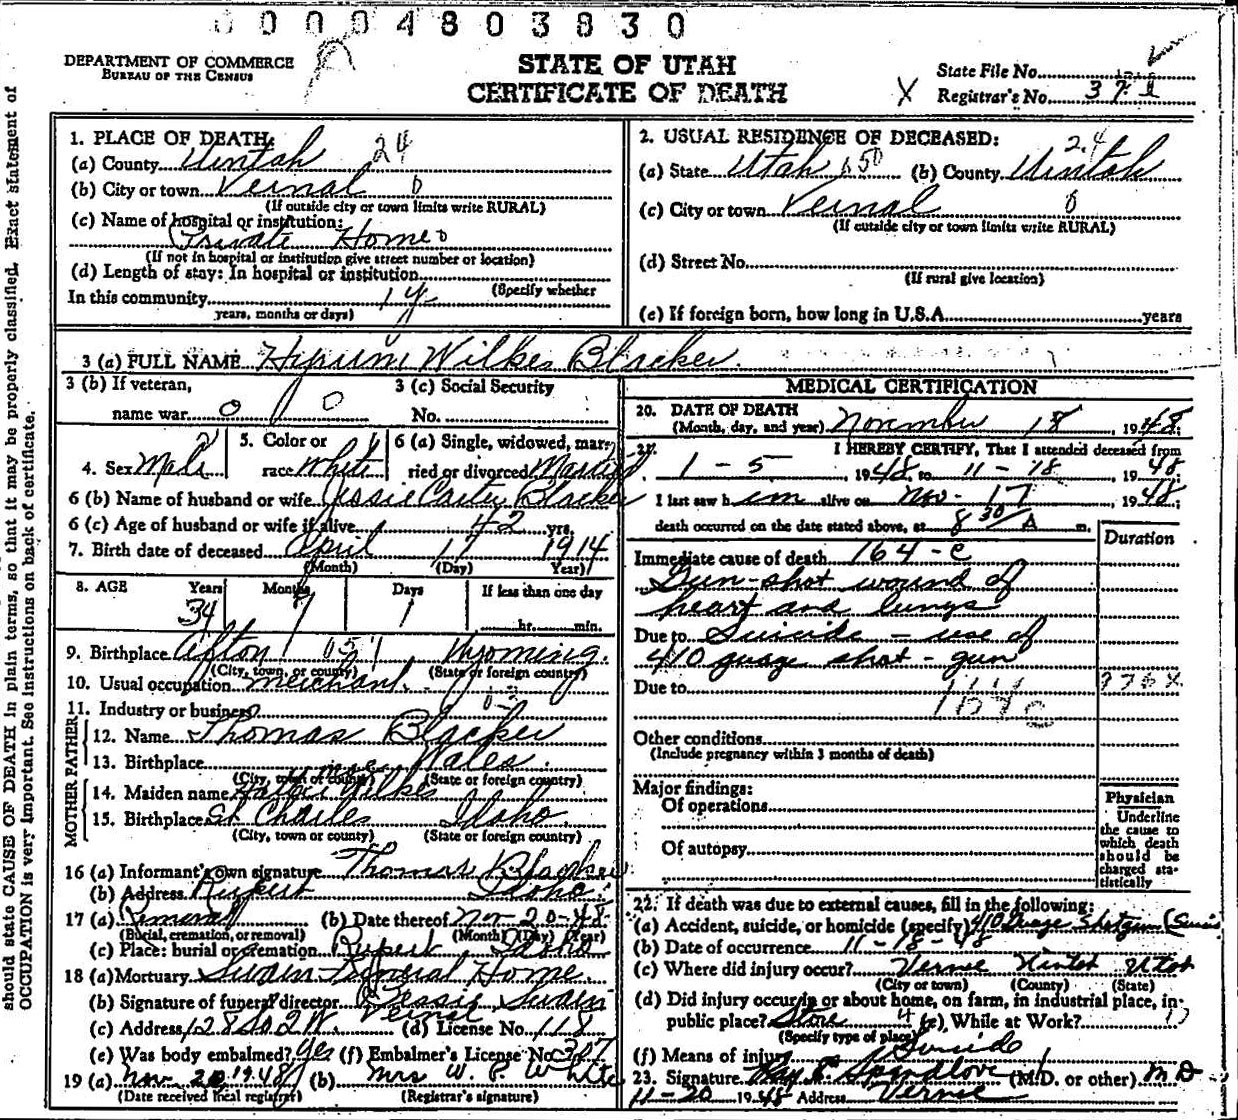 00004803830
DEPARTMENT OF COMMERCE
BUREAU OF THE CENSUS
STATE OF UTAH
CERTIFICATE OF DEATH
State File No.
X Registrar's No. 37
should state CAUSE OF DEATH in plain terms, so that it may be properly classified. Exact statement of
OCCUPATION is very important. See instructions on back of certificate.
1. PLACE OF DEATH:
(a) County Uintah 24
(b) City or town Vernal 0
(If outside city or town limits write RURAL)
(c) Name of hospital or institution:
Private Home 0
(If not in hospital or institution give street number or location)
(d) Length of stay: In hospital or institution
(Specify whether
In this community 1 y
years, months or days)
2. USUAL RESIDENCE OF DECEASED:
(a) State Utah 650 (b) County Uintah 24
(c) City or town Vernal 0
(If outside city or town limits write RURAL)
(d) Street No.
(If rural give location)
(e) If foreign born, how long in U.S.A. years
3 (a) FULL NAME Hyrum Wilkes Blacker
3 (b) If veteran,
name war 0 0
3 (c) Social Security
No.
4. Sex Male
5. Color or
race White
6 (a) Single, widowed, mar-
ried or divorced Married
6 (b) Name of husband or wife Jessie Carley Blacker
6 (c) Age of husband or wife if alive 42 yrs.
7. Birth date of deceased April 17 1914
(Month) (Day) Year)
8. AGE Years Months Days If less than one day
34 7 1 hr. min.
9. Birthplace Afton 051 Wyoming.
(City, town, or county) (State or foreign country)
10. Usual occupation merchant
11. Industry or business
FATHER
12. Name Thomas Blacker
13. Birthplace Wales
(City, town or county) (State or foreign country)
MOTHER
14. Maiden name Wilkes
15. Birthplace St Charles Idaho
(City, town or county) (State or foreign country)
16 (a) Informant's own signature Thomas Blacker
(b) Address Rupert Idaho
17 (a) Removal (b) Date thereof Nov-20-48
(Burial, cremation, or removal) (Month) (Day) (Year)
(c) Place: burial or cremation Rupert Idaho
18 (a) Mortuary Swain Funeral Home
(b) Signature of funeral director Swain
(c) Address 128 So 2 W. Vernal (d) License No. 118
(e) Was body embalmed? Yes (f) Embalmer's License No. 327
19 (a) Nov-20, 1948 (b) Mrs W. P. White
(Date received local registrar) (Registrar's signature)
MEDICAL CERTIFICATION
20. DATE OF DEATH
(Month, day, and year) November 18, 1948
21. I HEREBY CERTIFY, That I attended deceased from
1-5, 1948, to 11-18, 1948
I last saw h im alive on Nov-17 1948
death occurred on the date stated above, at 8 30/A m.
Duration
Immediate cause of death 164-c
Gun-shot wound of
heart and lungs
Due to Suicide - use of
410 guage shot-gun
Due to 976X
164c
Other conditions
(Include pregnancy within 3 months of death)
Major findings:
Of operations
Of autopsy
Physician
Underline
the cause to
which death
should be
charged sta-
tistically
22. If death was due to external causes, fill in the following:
(a) Accident, suicide, or homicide (specify) 410 Guage Shotgun
(b) Date of occurrence 11-18-48
(c) Where did injury occur? Utah
(City or town) (County) (State)
(d) Did injury occur in or about home, on farm, in industrial place, in
public place? Store 4 (e) While at Work?
(Specify type of place)
(f) Means of injury Suicide
23. Signature Ray E Spendlove (M.D. or other) M D
11-20 1948 Address